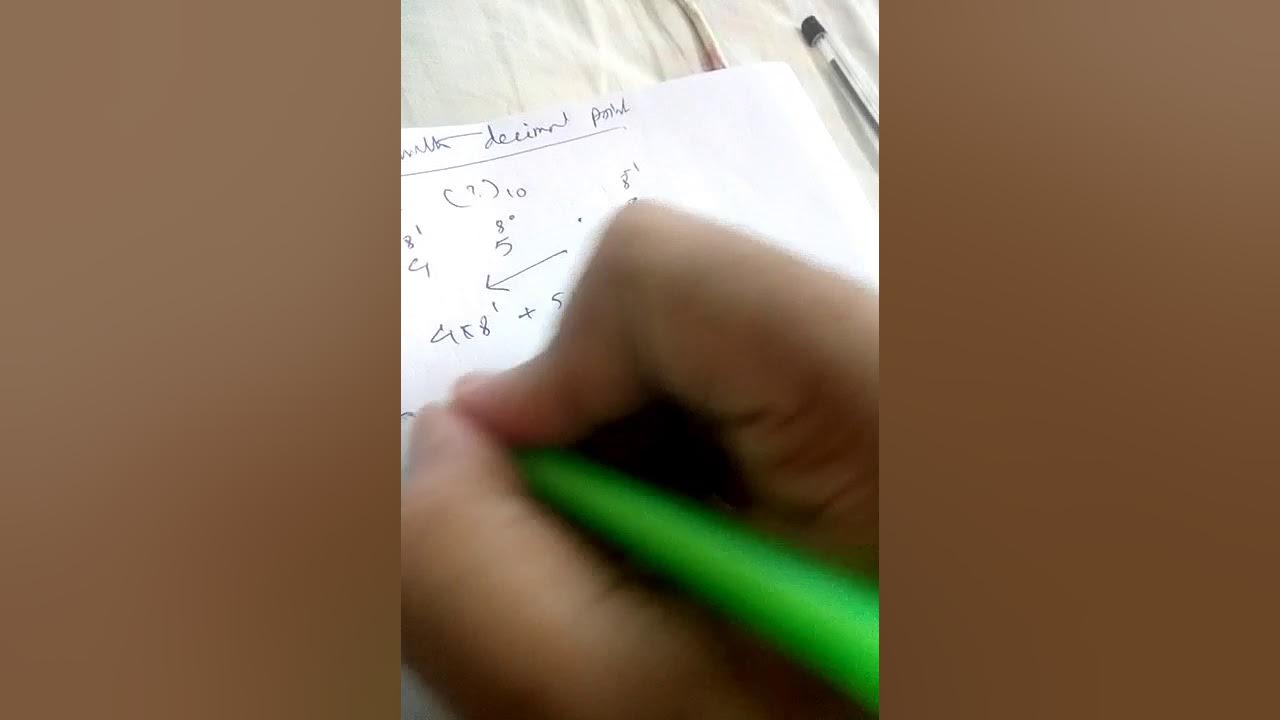 with decimal point
(?)10
8¹ 8⁰ . 8⁻¹
4 5
4×8¹ + 5